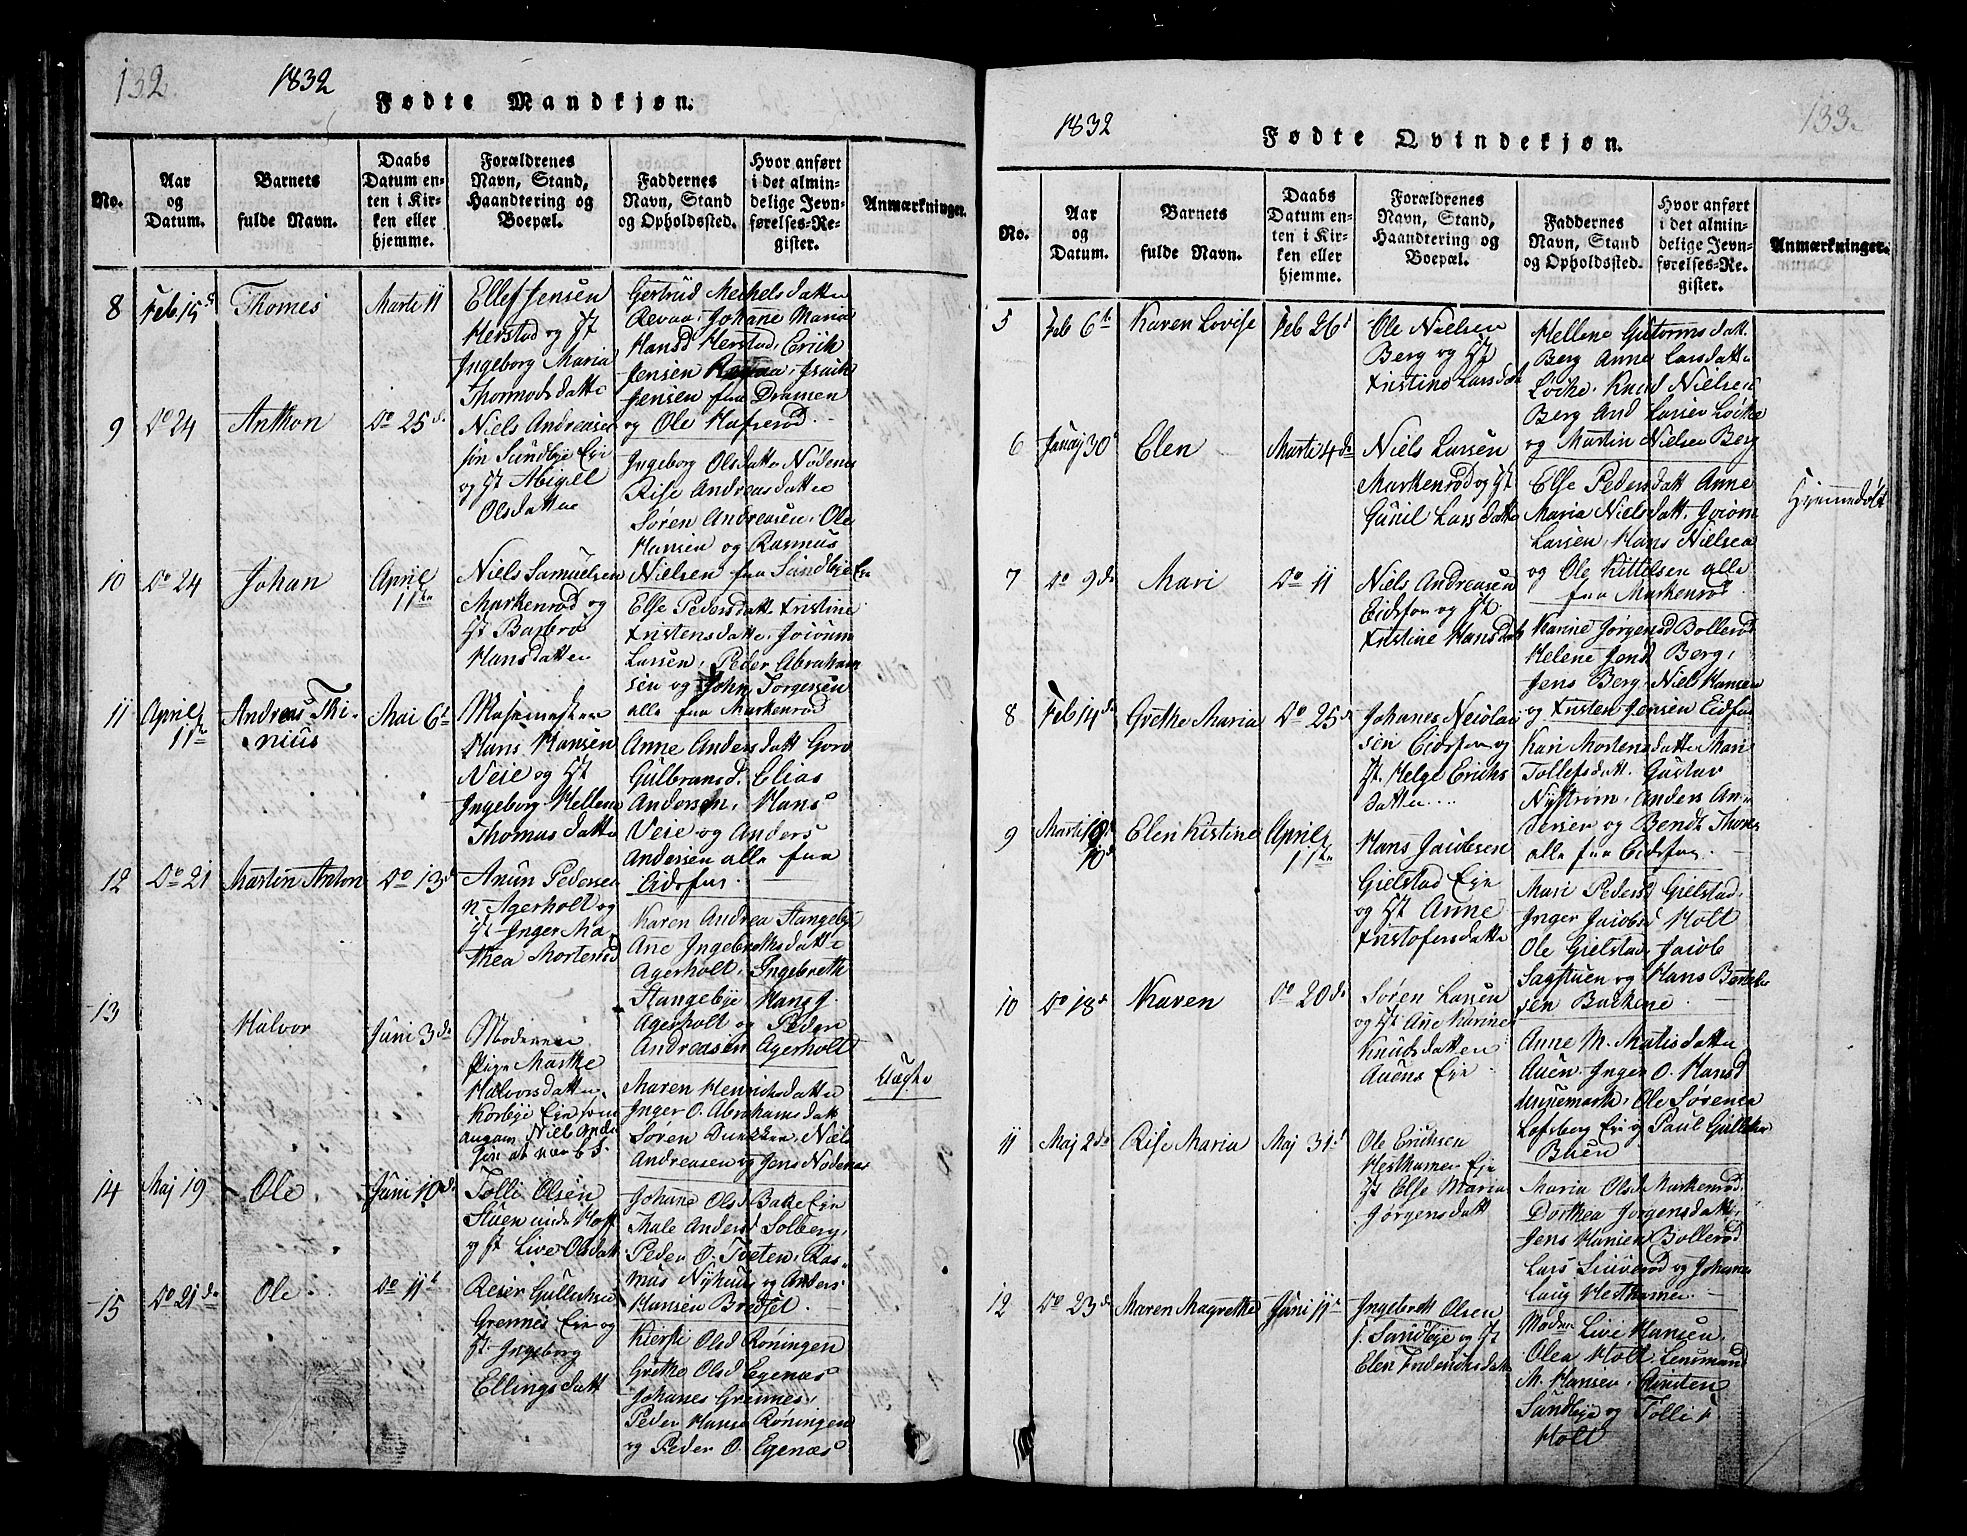 132.
1832
Fødte Mandkjøn.
No.
Aar
og
Datum.
Barnets
fulde Navn.
Daabs
Datum en-
ten i Kir-
ken eller
hjemme.
Forældrenes
Navn, Stand,
Haandtering og
Boepæl.
Faddernes
Navn, Stand
og Opholdssted.
Hvor anført
i det almin-
delige Jevn-
førelses-Re-
gister.
Anmærkninger.
8
Feb. 15d
Thomes
Marti 11
Ellef Jensen
Herstad og H
Ingeborg Maria
Thormodsdatte
Gertrud Mechelsdatte
Revaa, Johane Maria
Hansd Herstad, Erich
Jensen Revaa, Isaich
Jensen fra Dramen
og Ole Hafserød.
9
Do 24
Anthon
Do 25d
Niels Andreasen
søn Sundbye Eie
og H Abigel
Olsdatter
Ingeborg Olsdatte Nødenes
Rise Andreasdatte
Søren Andreasen, Ole
Hansen og Rasmus
Nielsen fra Sundbye Eie
10
Do 24
Johan
April
11te
Niels Samuelsen
Markenrød og
H Barbro
Hansdatter
Else Pedersdatt. Kristine
Kristensdatte, Joiorum
Larsen, Peder Abraham
sen og John Torgersen
alle fra Markenrød
11
April
11te
Andreas Thi-
nius
Mai 6t
Masemester
Hans Hansen
Neie og H
Ingeborg Hellene
Thomasdatte
Anne Andersdatt Goro
Gulbransd. Elias
Andersen, Hans
Veie og Anders
Andersen alle fra
Eidsfos.
12
Do 21
Martin Anton
Do 13d
Anun Pedersen
n. Agerholt og
H Inger Ma
thea Mortensd
Karen Andrea Stangebye
Ane Ingebrethsdatte
Agerholt, Ingebreth
Stangebye, Hans J.
Agerholt og Peder
Andreasen Agerholt
13
Halvor
Juni 3d
Moderen
Pige Marthe
Halvorsdatter
Korbye Eie
Maren Henrichsdatter
Inger O. Abrahamsdatt
Søren Niels
Andreasen og Jens Nødenes
Uægte
14
Maj 19
Ole
Juni 10d
Tolli Olsen
Stuen under Hoff
og H Live Olsdatt
Johane Olsd Bakke Eie
Thale Andersd Solberg,
Peder O. Tveten, Ras-
mus Nyhuus og Anders
Hansen Brødsel.
15
Do 21de
Ole
Do 11t
Reier Gullichsen
Grennes Eie og
H. Ingeborg
Ellingsdatt
Kiersti Olsd Røningen
Grethe Olsd Egenæs
Johanes Grennes,
Peder Hansen Røningen
og Peder O. Egenæs
133.
1832
Fødte Qvindekjøn.
No.
Aar
og
Datum.
Barnets
fulde Navn.
Daabs
Datum en-
ten i Kir-
ken eller
hjemme.
Forældrenes
Navn, Stand,
Haandtering og
Boepæl.
Faddernes
Navn, Stand
og Opholdssted.
Hvor anført
i det almin-
delige Jevn-
førelses-Re-
gister.
Anmærkninger.
5
Feb 6t
Karen Lovise
Feb 26t
Ole Nielsen
Berg og H
Kristine Larsdat
Hellene Gutormsdatt.
Berg Anne Larsdatte
Løcke, Knud Nielsen
Berg And Larsen Løcke
og Martin Nielsen Berg
6
Januaj 30
Elen
Marti 4de
Niels Larsen
Markenrød og H
Gunil Larsdatte
Else Pedersdatt Anne
Maria Nielsdatt. Joiorn
Larsen, Hans Nielsen
og Ole Kittelsen alle
fra Markenrød.
Hjemmedøbt
7
Do 9de
Mari
Do 11
Niels Andreasen
Eidsfos og H
Kristine Hansdatt
Karine Jørgensd Bollerød
Helene Jensd Berg,
Jens Berg, Niels Hansen
og Kristen Jensen Eidsfos
8
Feb 14de
Grethe Maria
Do 25de
Johanes Neiolai
sen Eidsfos og
H. Helge Erichs
datter....
Kari Mortensdatte Mari
Tollefsdatt. Gustav
Nystrøm, Anders An-
dersen og Bendt Thomes
alle fra Eidsfos.
9
Marti
10d
Elen Kistine
April
11te
Hans Jacobsen
Gielstad Eje
og H Anne
Kristofersdatte
Mari Pedersd Gielstad,
Inger Jacobsd Holt
Ole Gielstad, Jacob
Sagstuen og Hans Bentsen
sen Backene.
10
Do 18de
Karen
Do 20de
Søren Larsen
og H. Ane Karine
Knudsdatter
Auens Eje
Anne M. Matisdatte
Auen, Inger O. Hansd
Ole Sørensen
Lofsberg Eie og Paul Gullichs
Buen
11
Maj 2de
Rise Maria
Maj 31t
Ole Erichsen
Hesthamer Eje
H Else Maria
Jørgensdatt
Maria Olsd Markenrød.
Dorthea Jorgensdatte,
Jens Hansen Bollerød
Lars og Johanes
Hesthamer.
12
Do 23de
Maren Magrethe
Juni 11t
Ingebrett Olsen
s. Sandbye og H
Elen Frederichsdatt
Moder Live Hansen,
Olea Holt, Lensmand
M. Hansen,
Sundbye og Tolli
Holt